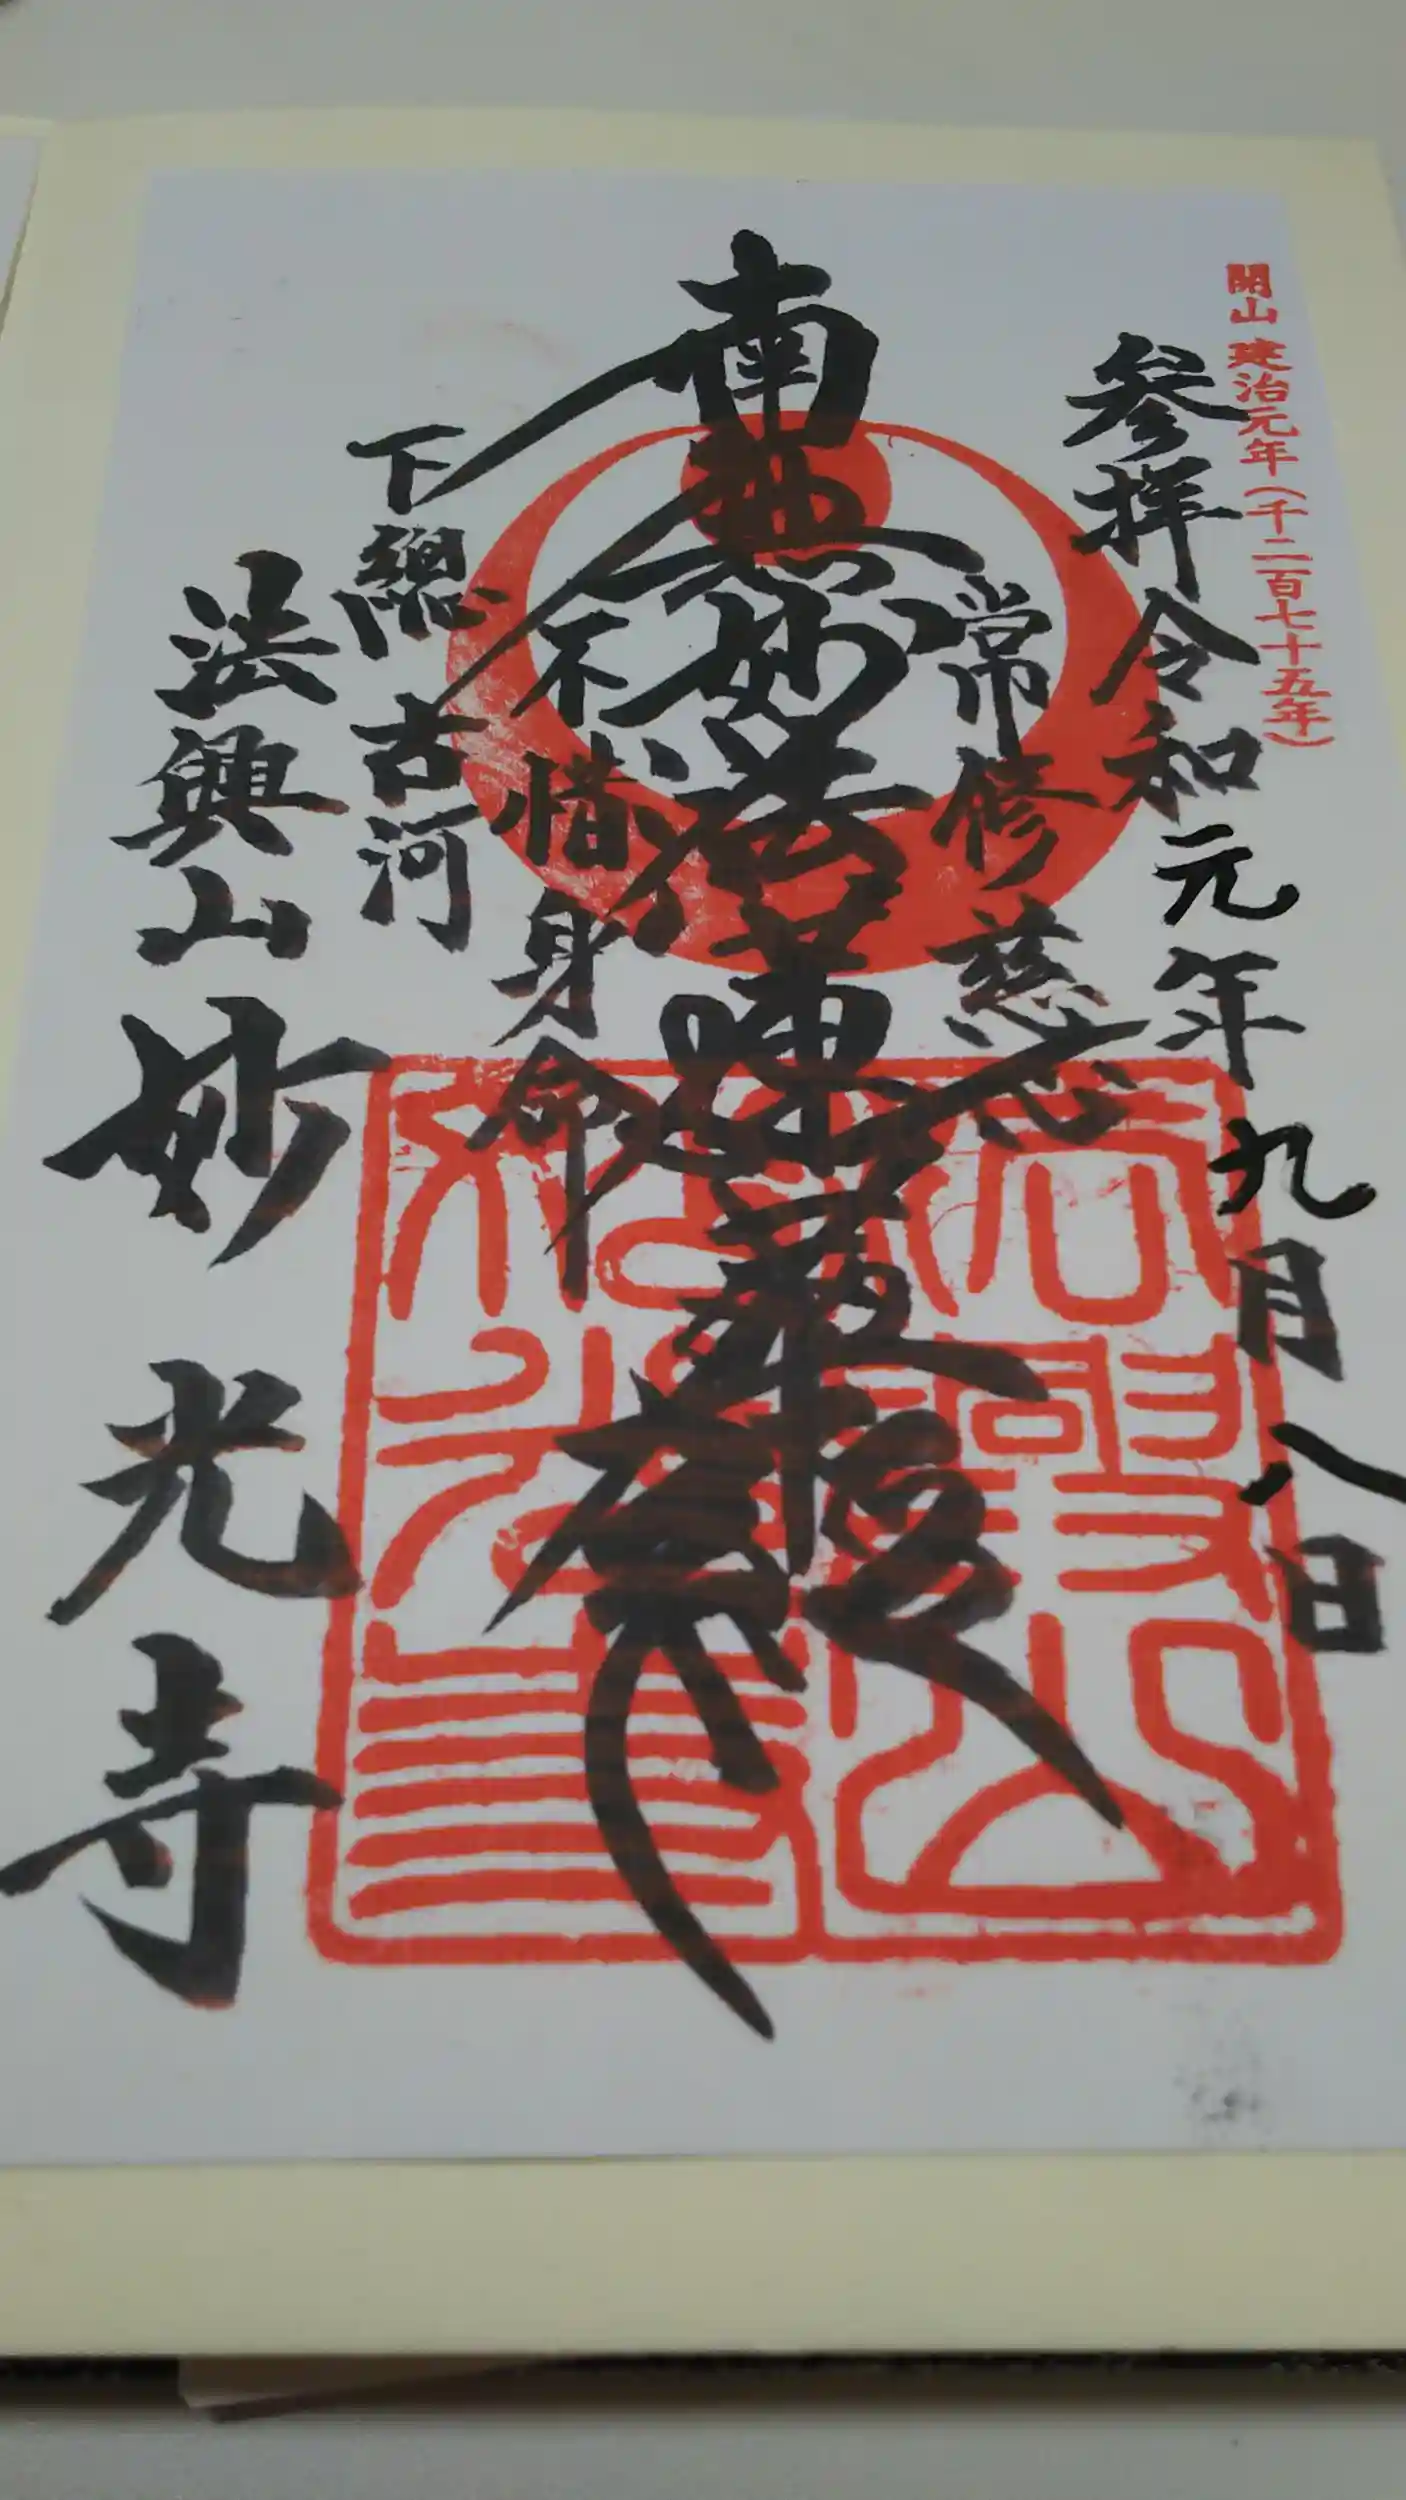 開山 建治元年(千二百七十五年)
参拝 令和元年九月八日
常修慈心
南無妙法蓮華経
不惜身命
下總 古河
法興山 妙光寺